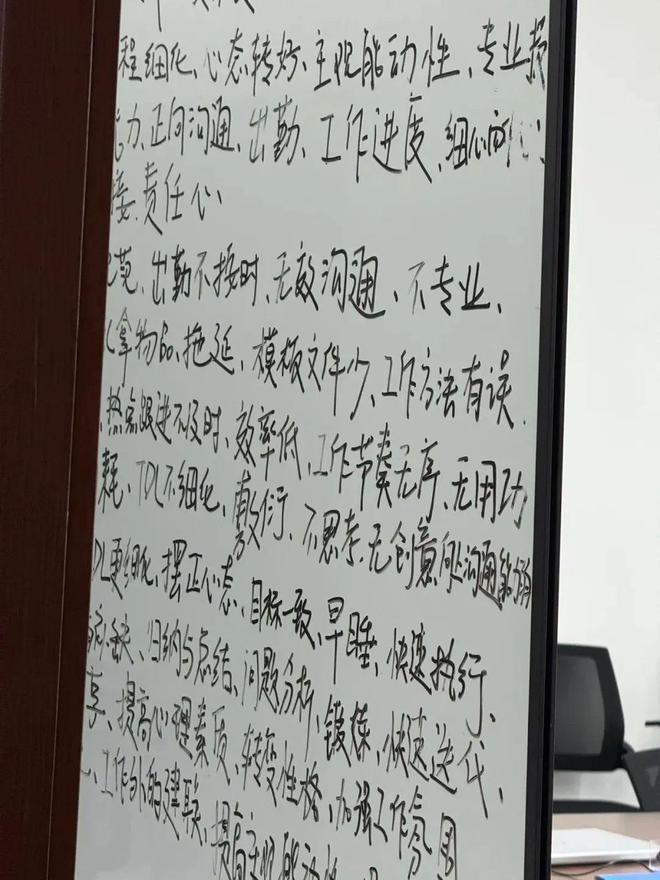 程细化、心态转好、主观能动性、专业技
能力、正向沟通、出勤、工作进度、细心
接、责任心
范、出勤不按时、无效沟通、不专业、
拿物品、拖延、模板文件少、工作方法有误、
热点跟进不及时、效率低、工作节奏无序、无用功
耗、TDL不细化、敷衍、不思考、无创意、向上沟通能力弱
DL更细化、摆正心态、目标一致、早睡、快速执行、
缺、归纳与总结、问题分析、锻炼、快速迭代、
享、提高心理素质、转变性格、加强工作氛围
、工作外的建联、提高主观能动性